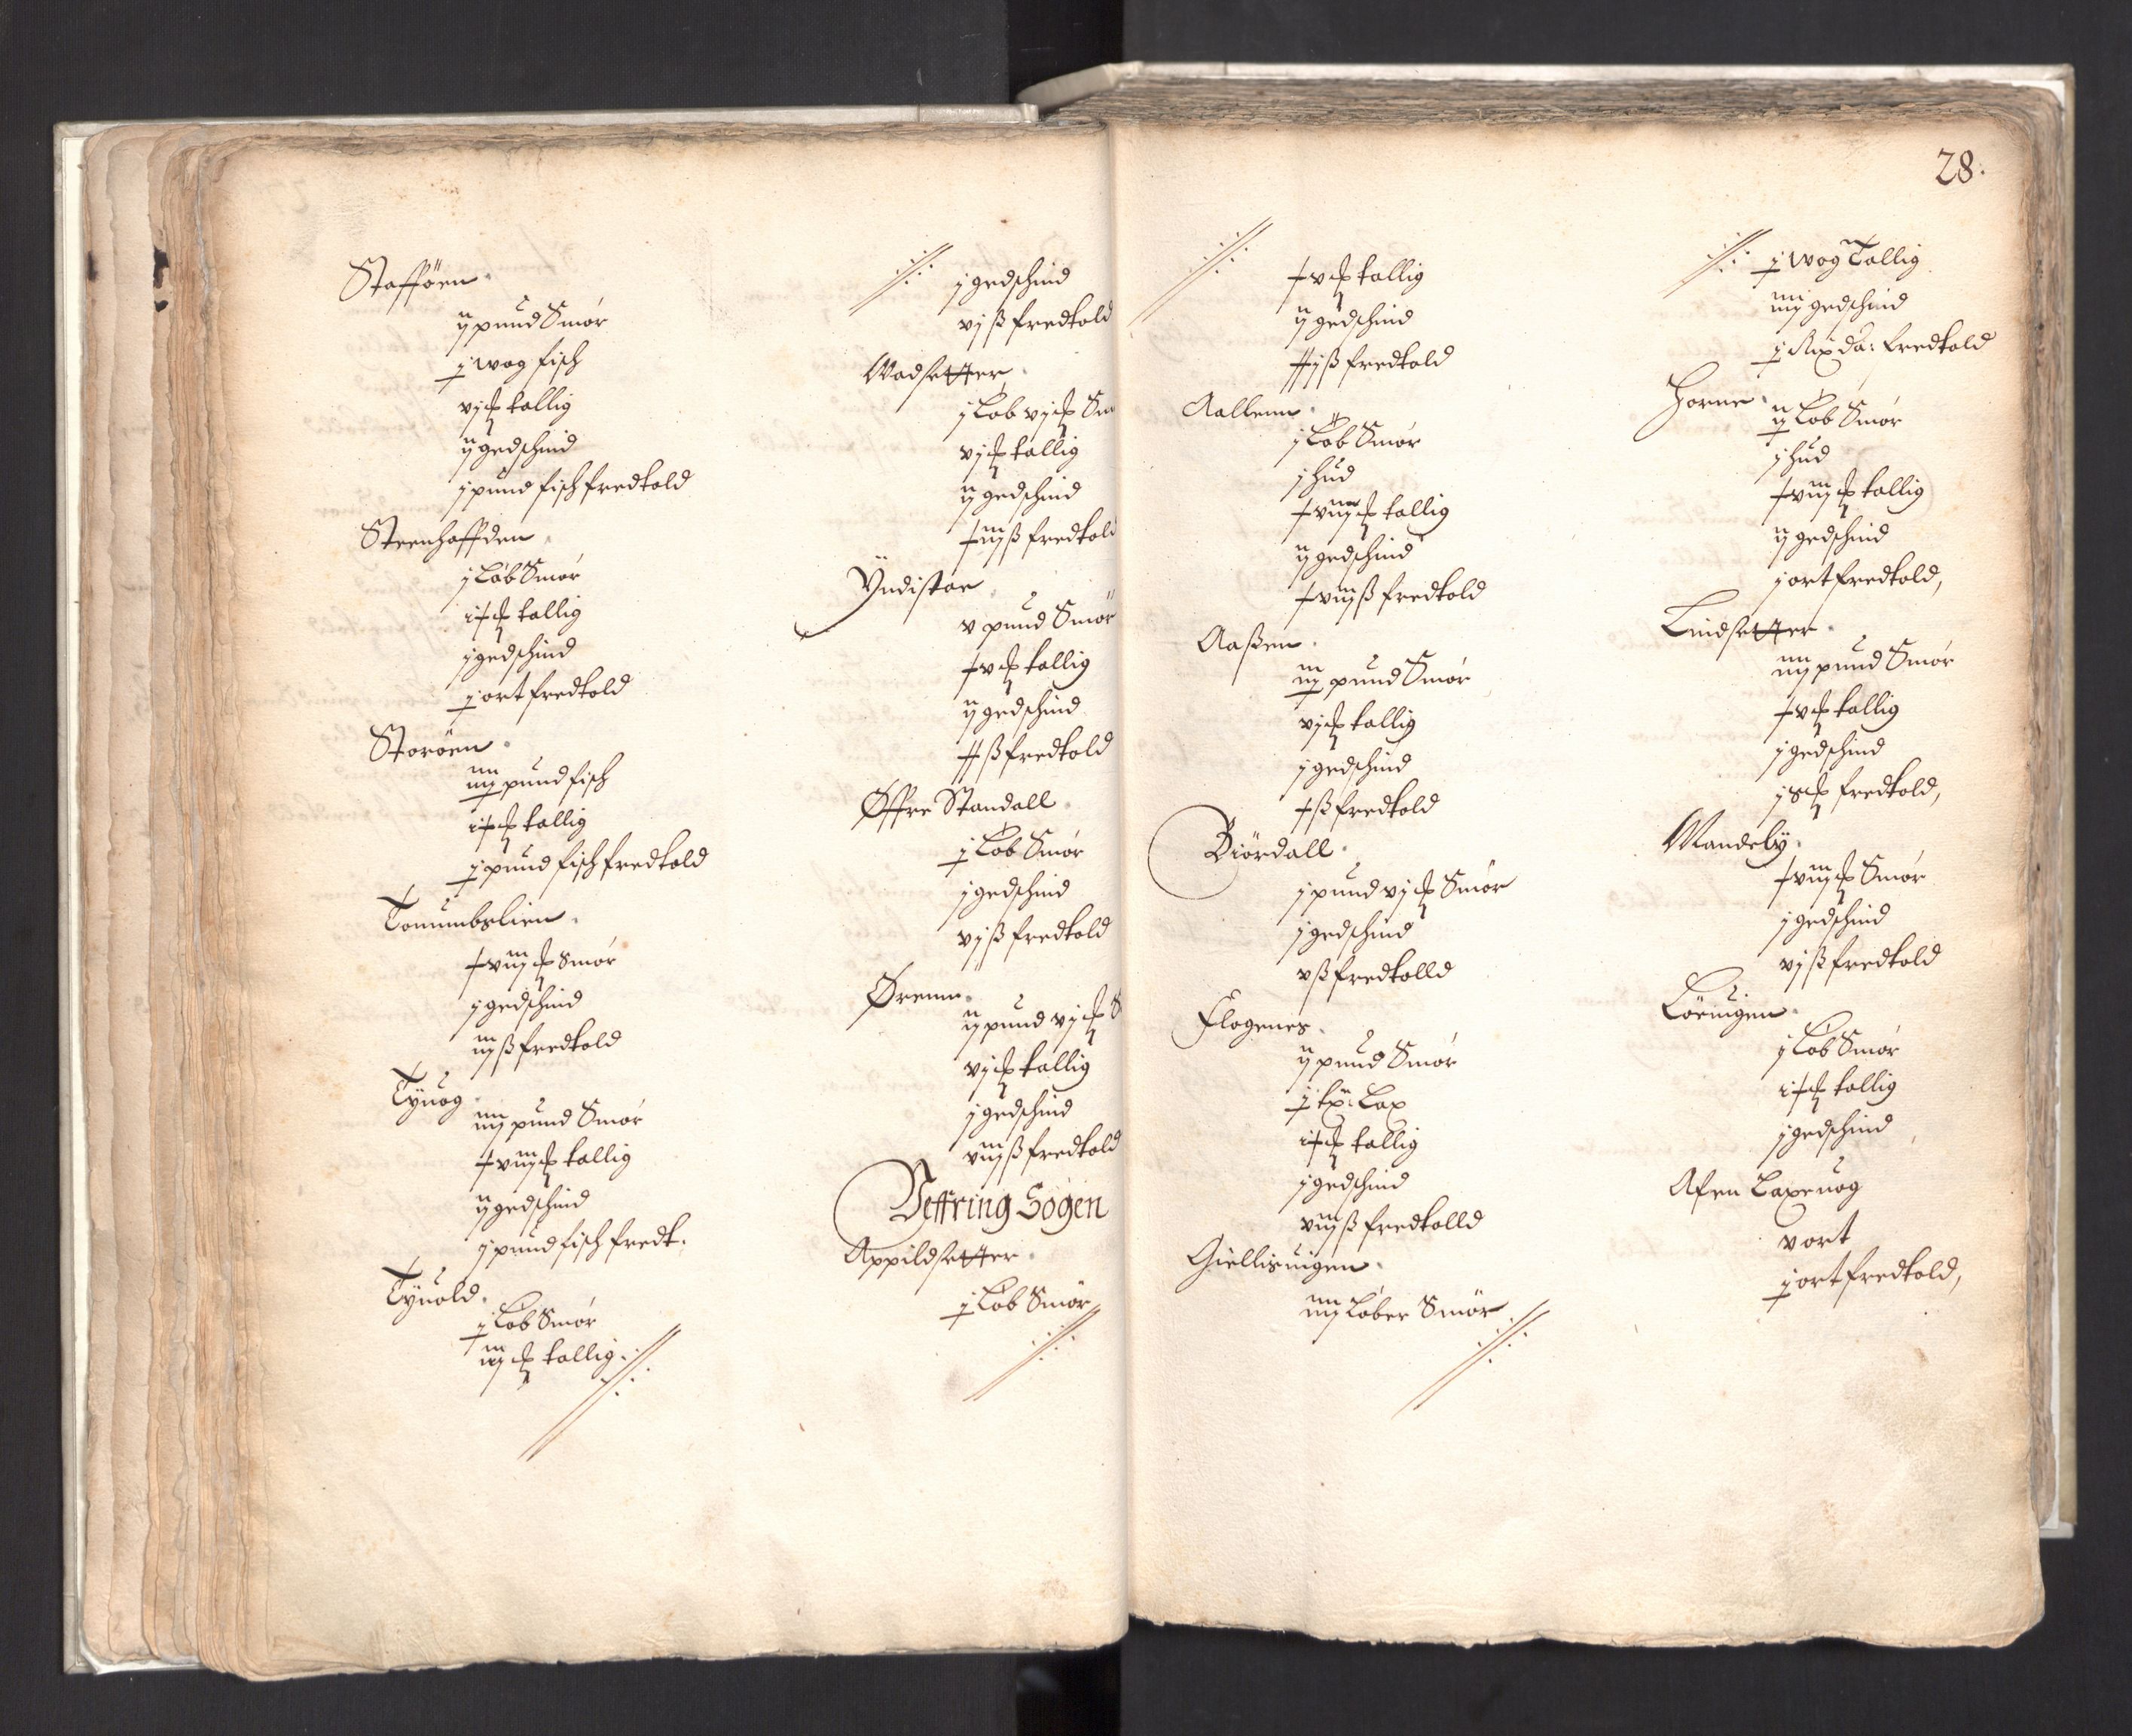 Stafföen.
ij pund Smör
j wog fisch
vj ℔ tallig
ij gedschind
j pund fisch fredtold
Steenhaffden.
j Løb Smör
ix ℔ tallig
j gedschind
j ort fredtold
Storöen.
iiij pund fisch
ix ℔ tallig
j pund fisch fredtold
Tonumbslien.
xviij ℔ smör
j gedschind
iij ß fredtold
Tyuog.
iiij pund Smör
xviij ℔ tallig
ij gedschind
j pund fisch fredt.
Tyuold.
j Løb Smör
iij ℔ tallig ://:
://: j gedschind
vj ß fredtold
Wadsetter
j Løb vj ℔ Sm
vj ℔ tallig
ij gedschind
xiij ß fredtold
Ÿndistar
v pund Smör
xv ℔ tallig
ij gedschind
xx ß fredtold
Øffre Standall.
j Løb Smör
j gedschind
vj ß fredtold
Ørenn.
ij pund vj ℔ S
vj ℔ tallig
j gedschind
viij ß fredtold
Veffring Sogen
Appildsetter.
j Løb Smör
://:
28.
://: xv ℔ tallig
ij gedschind
xxj ß fredtold
Aallenn.
j Løb Smör
j hud
xviij ℔ tallig
ij gedschind
xviij ß fredtold
Aaßen.
iij pund Smör
vj ℔ tallig
j gedschind
x ß fredtold
Biördall.
j pund vj ℔ Smör
j gedschind
v ß fredtolld
Flogenes.
ij pund Smör
j tp: Lax
ix ℔ tallig
j gedschind
viij ß fredtolld
Giellisuigen.
iiij Løber Smör
://:
://: j wog Tallig
iiij gedschind
j Rix da: fredtold
Horne.
ij Løb Smör
j hud
xviij ℔ tallig
ij gedschind
j ort fredtold,
Lindsetter.
iiij pund Smör
xv ℔ tallig
j gedschind
j S℔ fredtold,
Mandeby.
xviij ℔ Smör
j gedschind
vj ß fredtold
Löeuigen.
j Løb Smör
ix ℔ tallig
j gedschind
Afen Laxeuog
v ort
j ort fredtold,